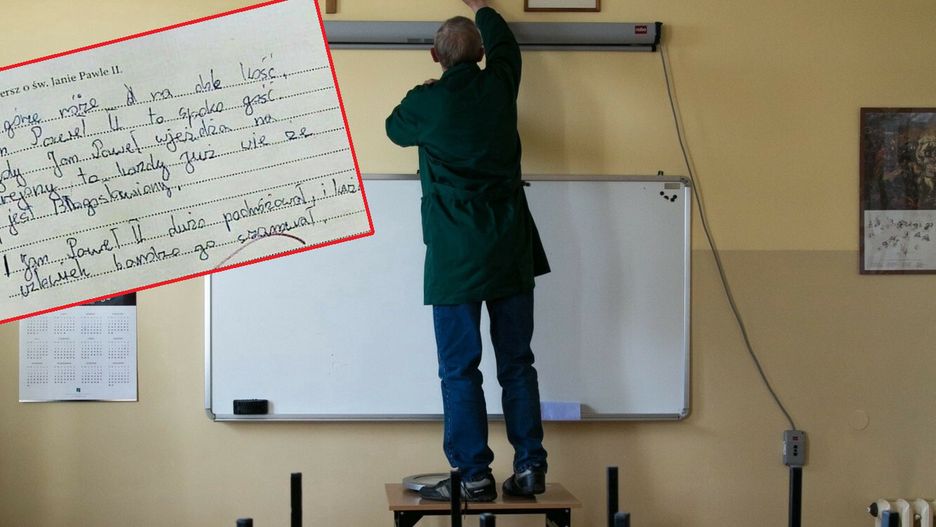 ersz o św. Janie Pawle II.
górze róże a na dole kość,
Paweł II to spoko gość
dy Jan Paweł wjeżdża na
rejony to każdy już wie że
jest Błogosławiony,
Jan Paweł II dużo podróżował, i każ
człowiek bardzo go szanował.